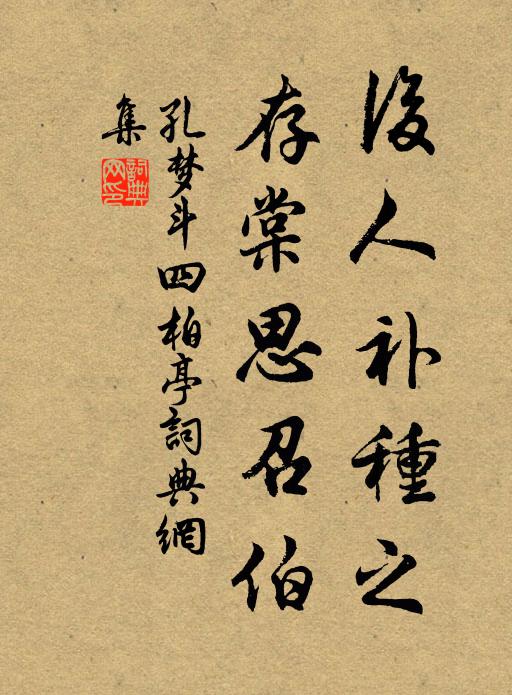 後人补種之
存棠思召伯
孔梦斗四柏亭詞典網
集
詞典网印